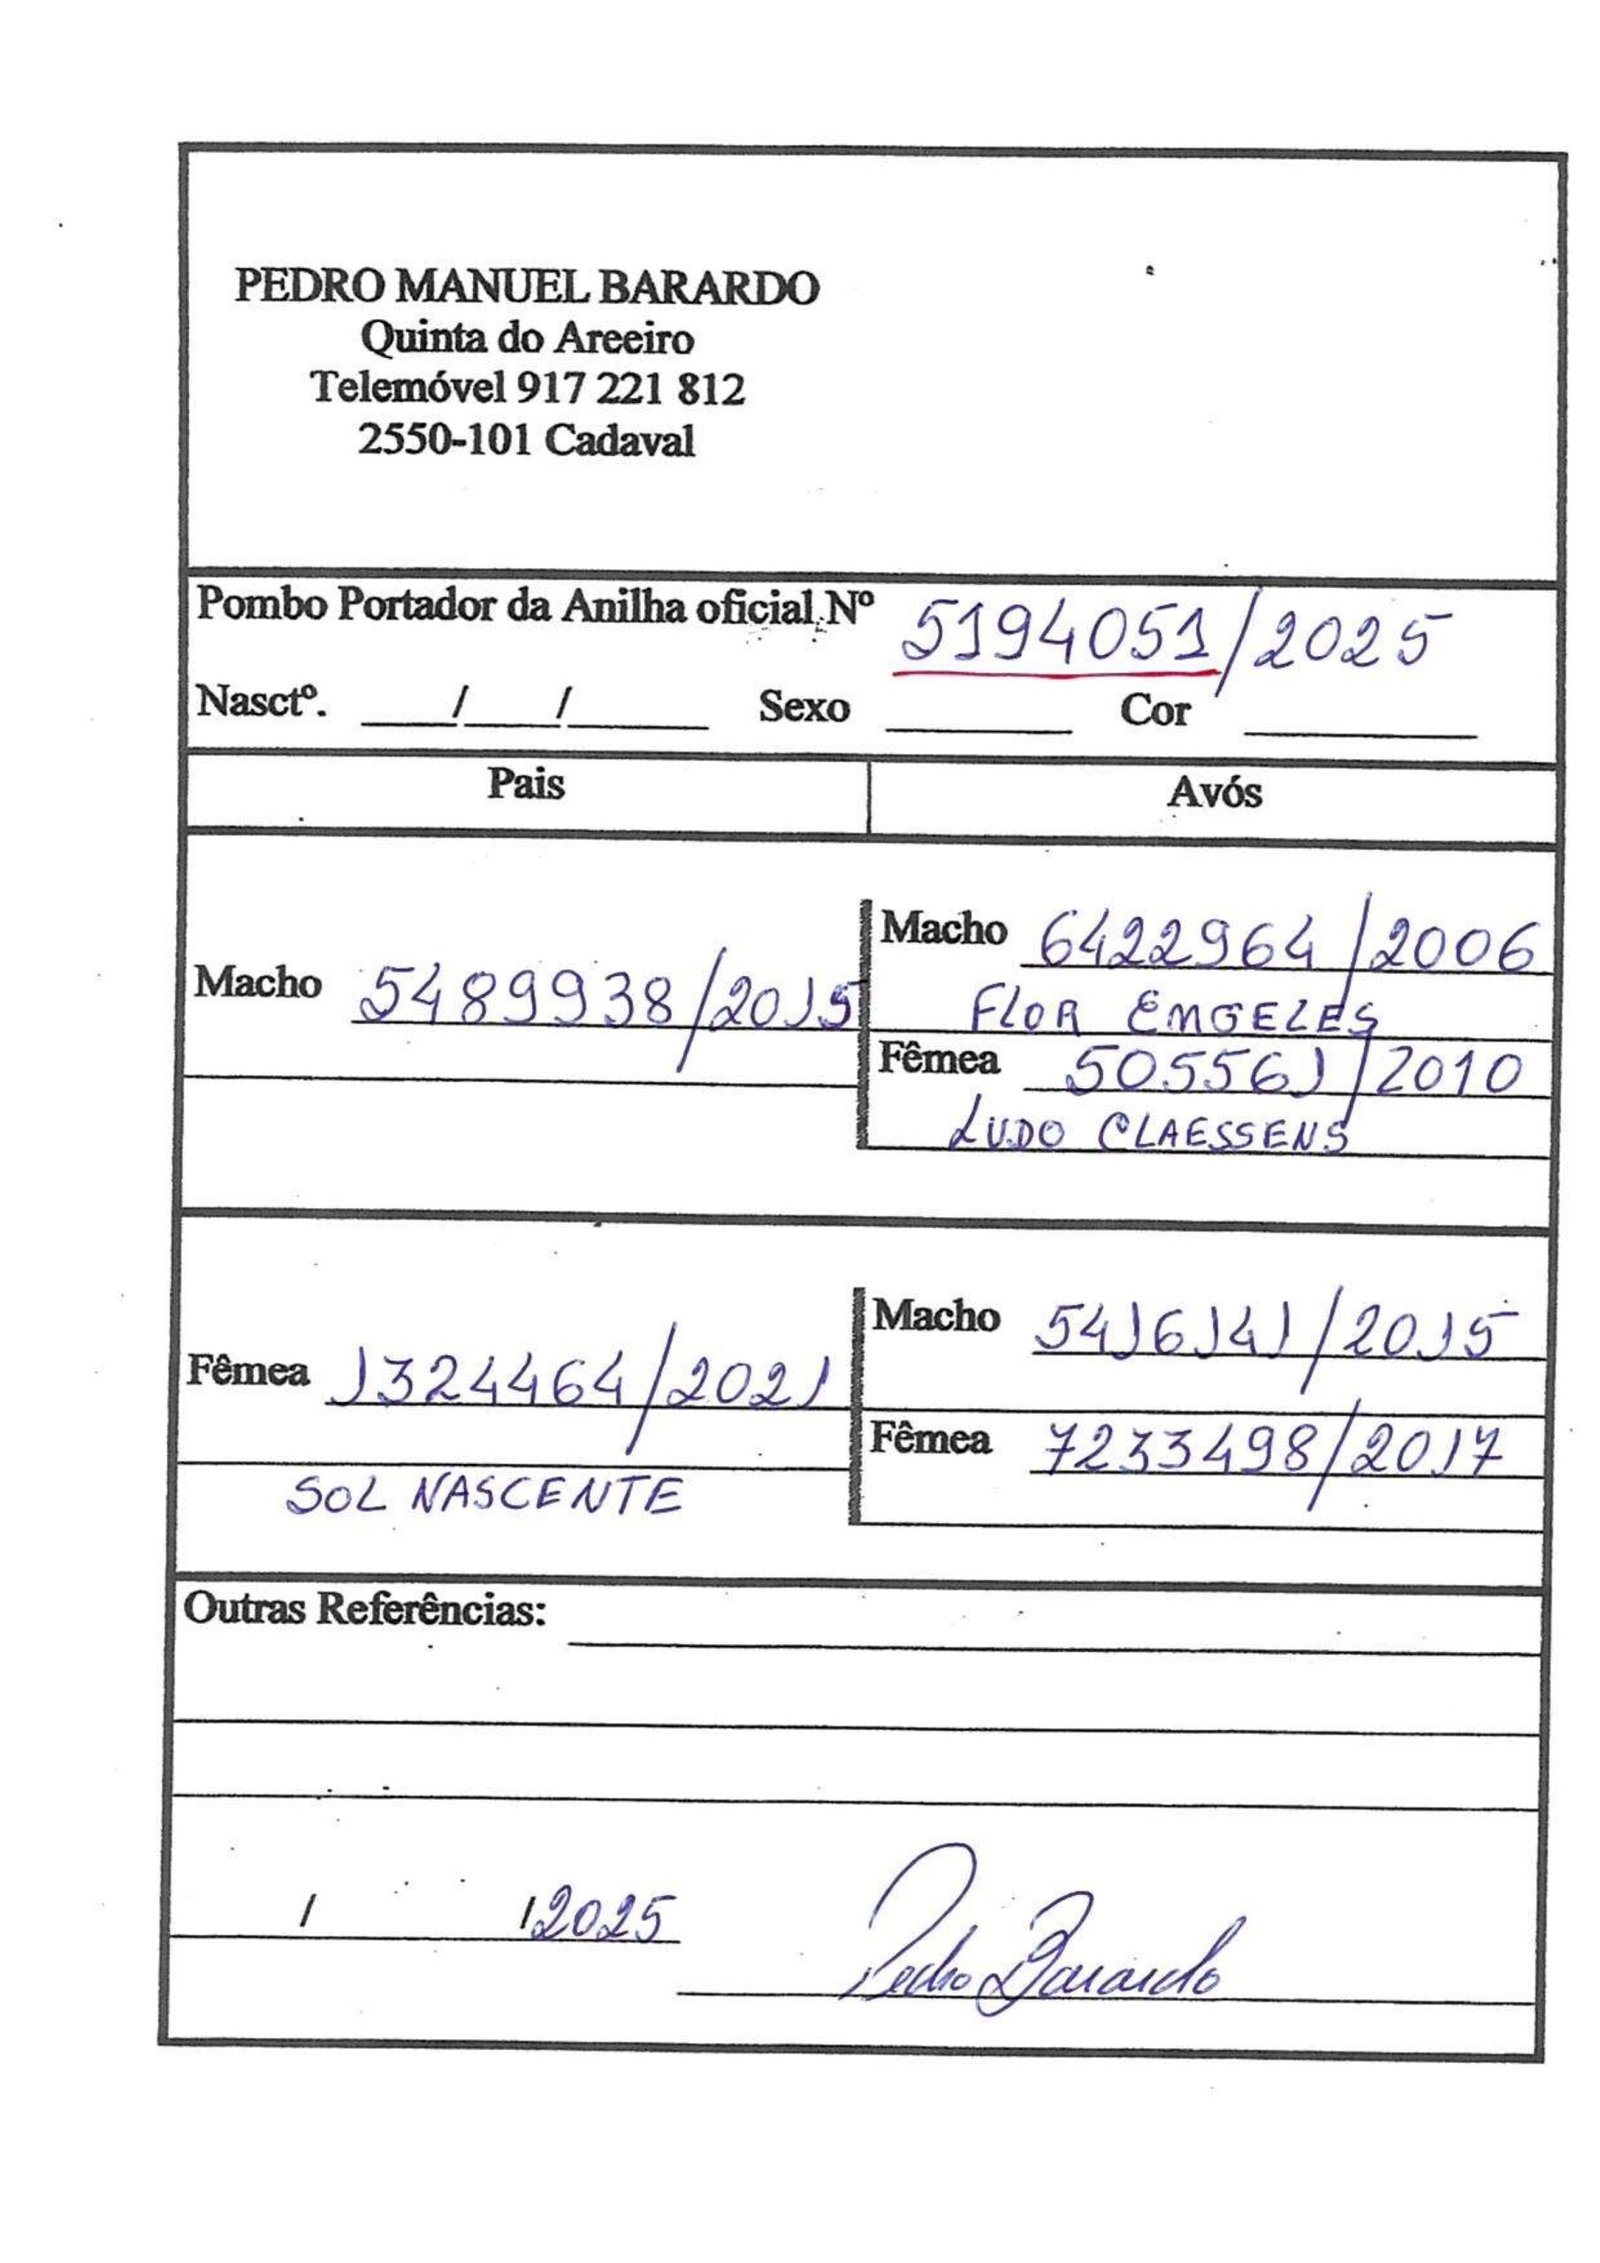 PEDRO MANUEL BARARDO
Quinta do Areeiro
Telemóvel 917 221 812
2550-101 Cadaval
Pombo Portador da Anilha oficial Nº 5194051/2025
Nasctº. ___/___/_____ Sexo ______ Cor ______
Pais Avós
Macho 6422964/2006
Macho 5489938/2015
FLOR EMGELES
Fêmea 505561/2010
LUDO CLAESSENS
Macho 5416141/2015
Fêmea 1324464/2021
Fêmea 7233498/2017
SOL NASCENTE
Outras Referências:
/ /2025
Pedro Barardo